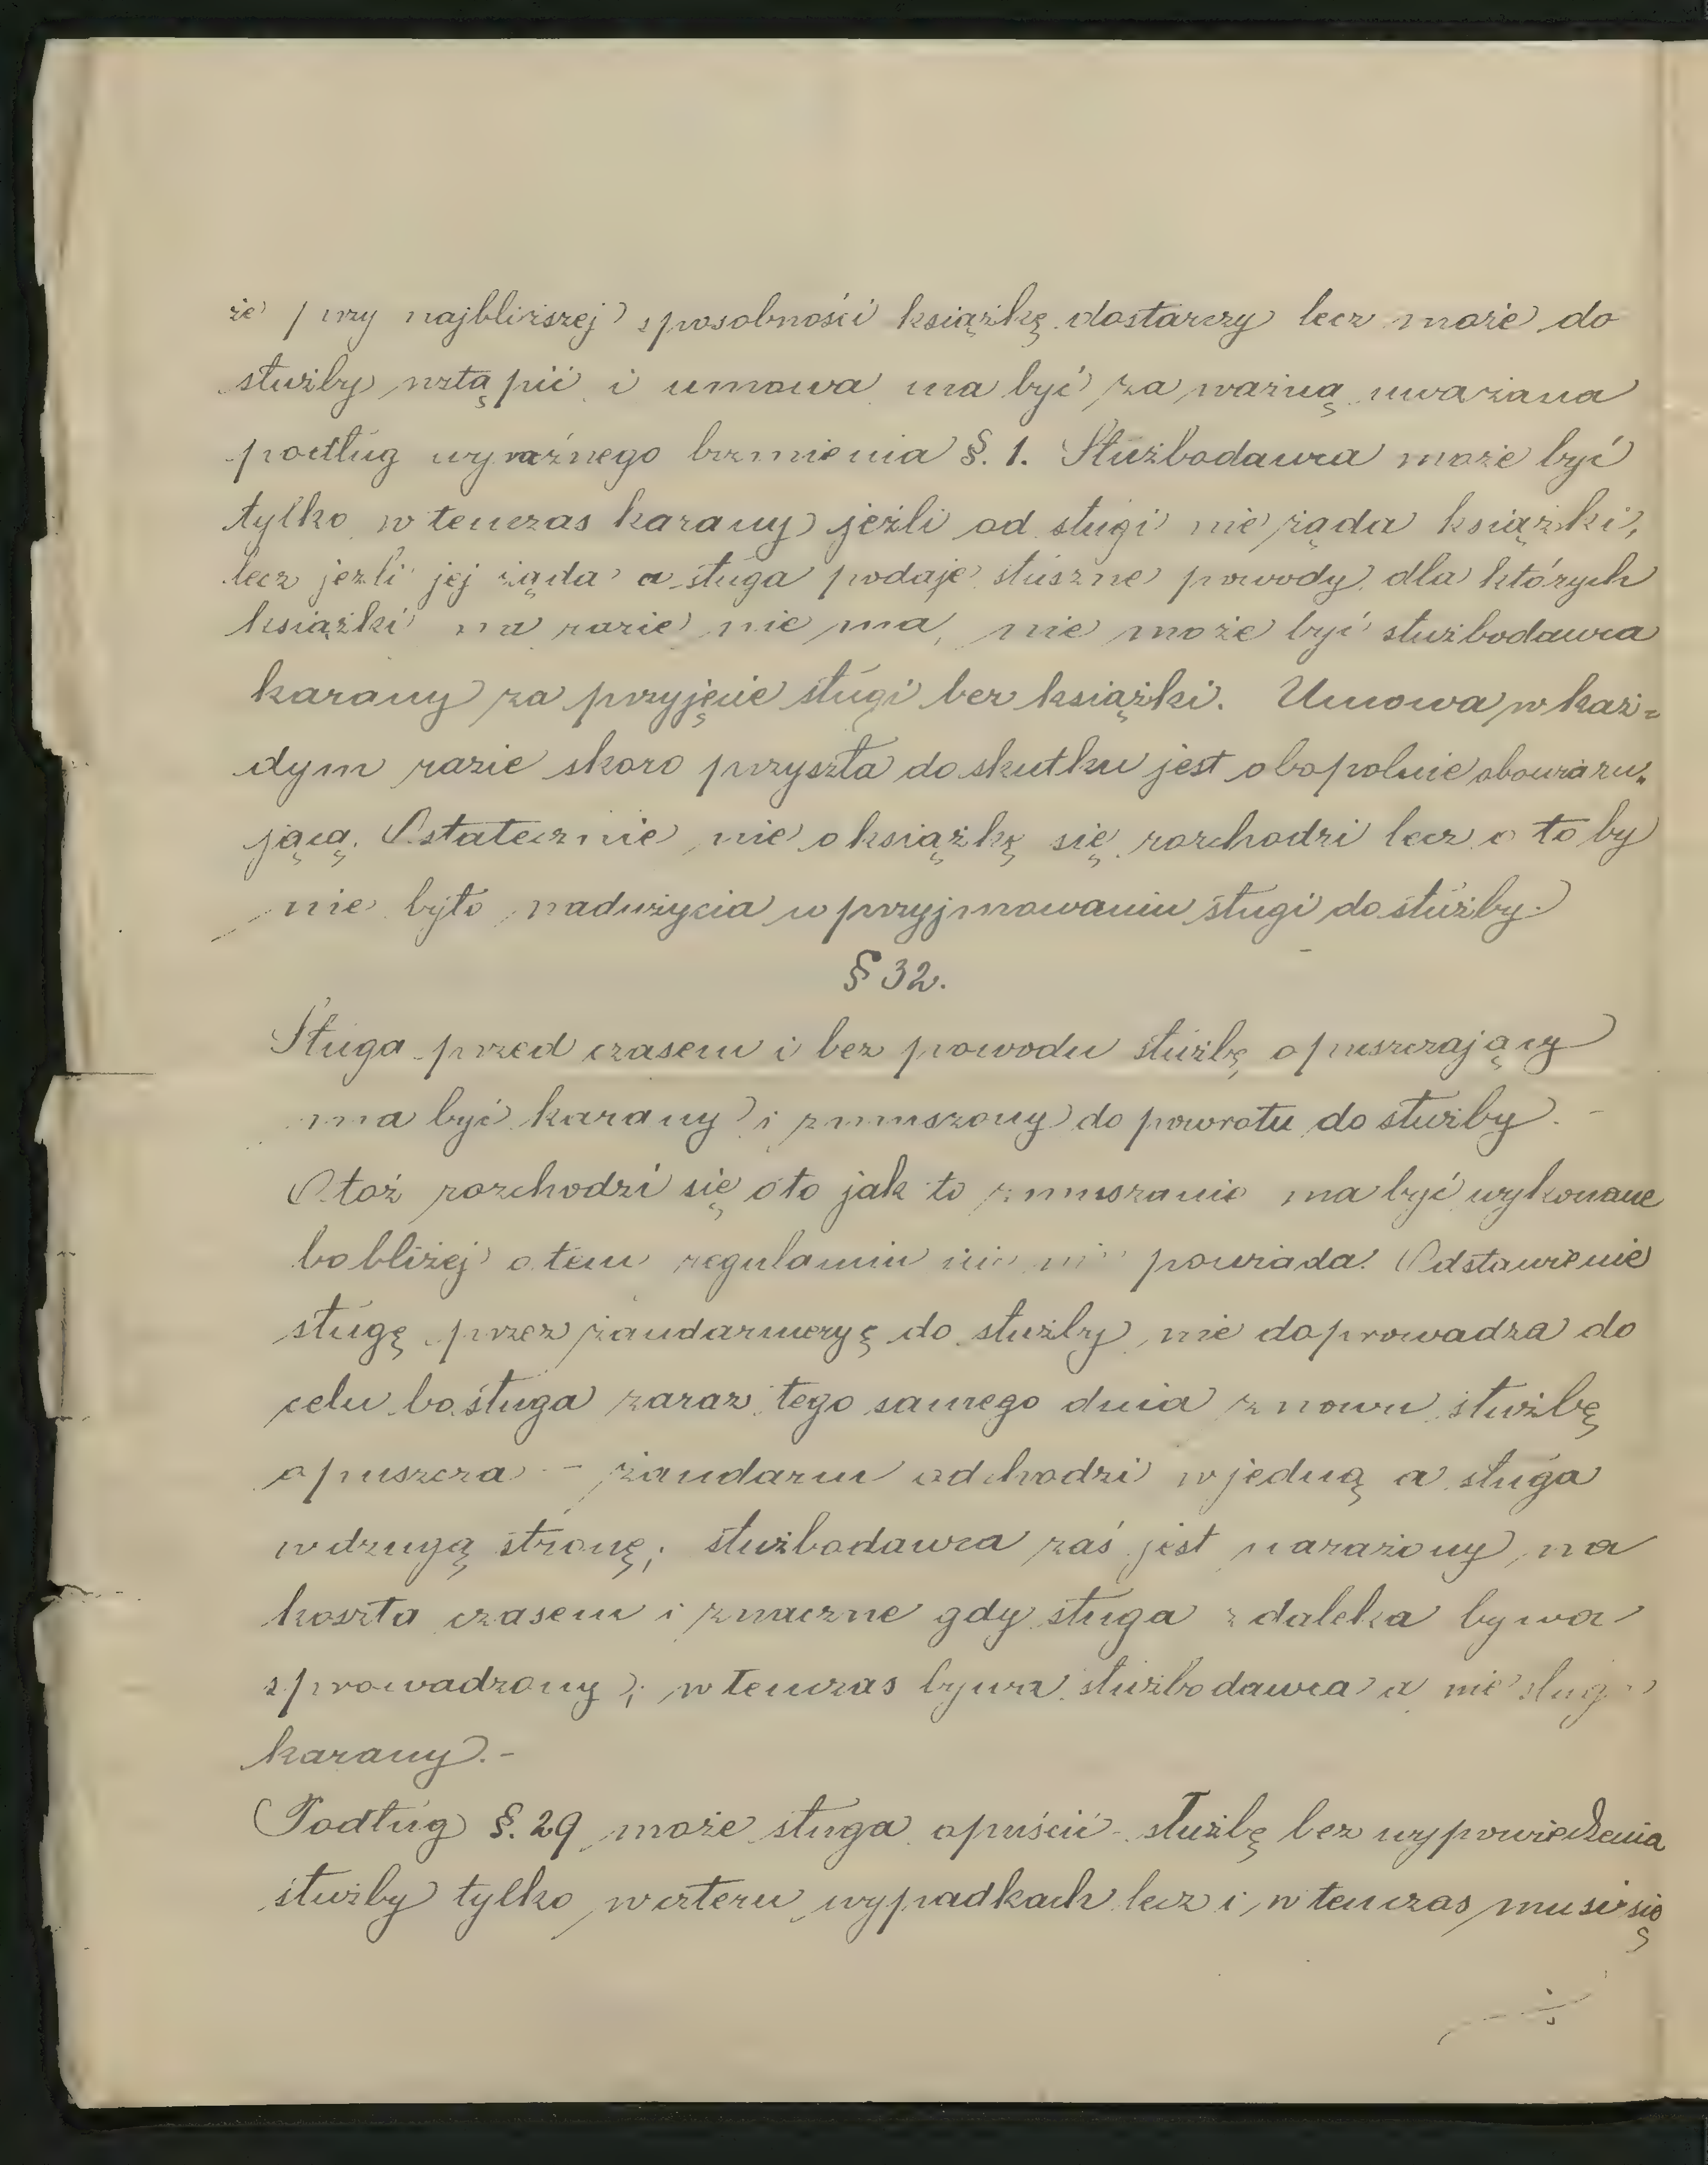 że przy najbliższej sposobności książkę dostarczy lecz może do
służby wstąpić i umowa ma być za ważną uważana
podług wyraźnego brzmienia §. 1. Służbodawca może być
tylko w tenczas karany jeżli od sługi nie żąda książki,
lecz jeżli jej żąda a sługa podaje słuszne powody dla których
książki na razie nie ma, nie może być służbodawca
karany za przyjęcie sługi bez książki. Umowa w każ=
dym razie skoro przyszła do skutku jest obopolnie obowiązu„
jącą. Ostatecznie nie o książkę się rozchodzi lecz o to by
nie było nadużycia w przyjmowaniu sługi do służby.
§ 32.
Sługa przed czasem i bez powodu służbę opuszczający
ma być karany i zmuszony do powrotu do służby. -
Otoż rozchodzi się o to jak to zmuszanie ma być wykonane
bo bliżej o tem regulamin nic nie powiada. Odstawienie
sługę przez żandarmeryę do służby nie doprowadza do
celu bo sługa zaraz tego samego dnia znowu służbę
opuszcza - żandarm odchodzi w jedną a sługa
w drugą stronę; służbodawca zaś jest narażony na
koszta czasem i znaczne gdy sługa z daleka bywa
sprowadzony; w tenczas bywa służbodawca a nie sługa
karany. -
Podług §. 29 może sługa opuścić służbę bez wypowiedzenia
służby tylko w czteru wypadkach lecz i w tenczas musi się